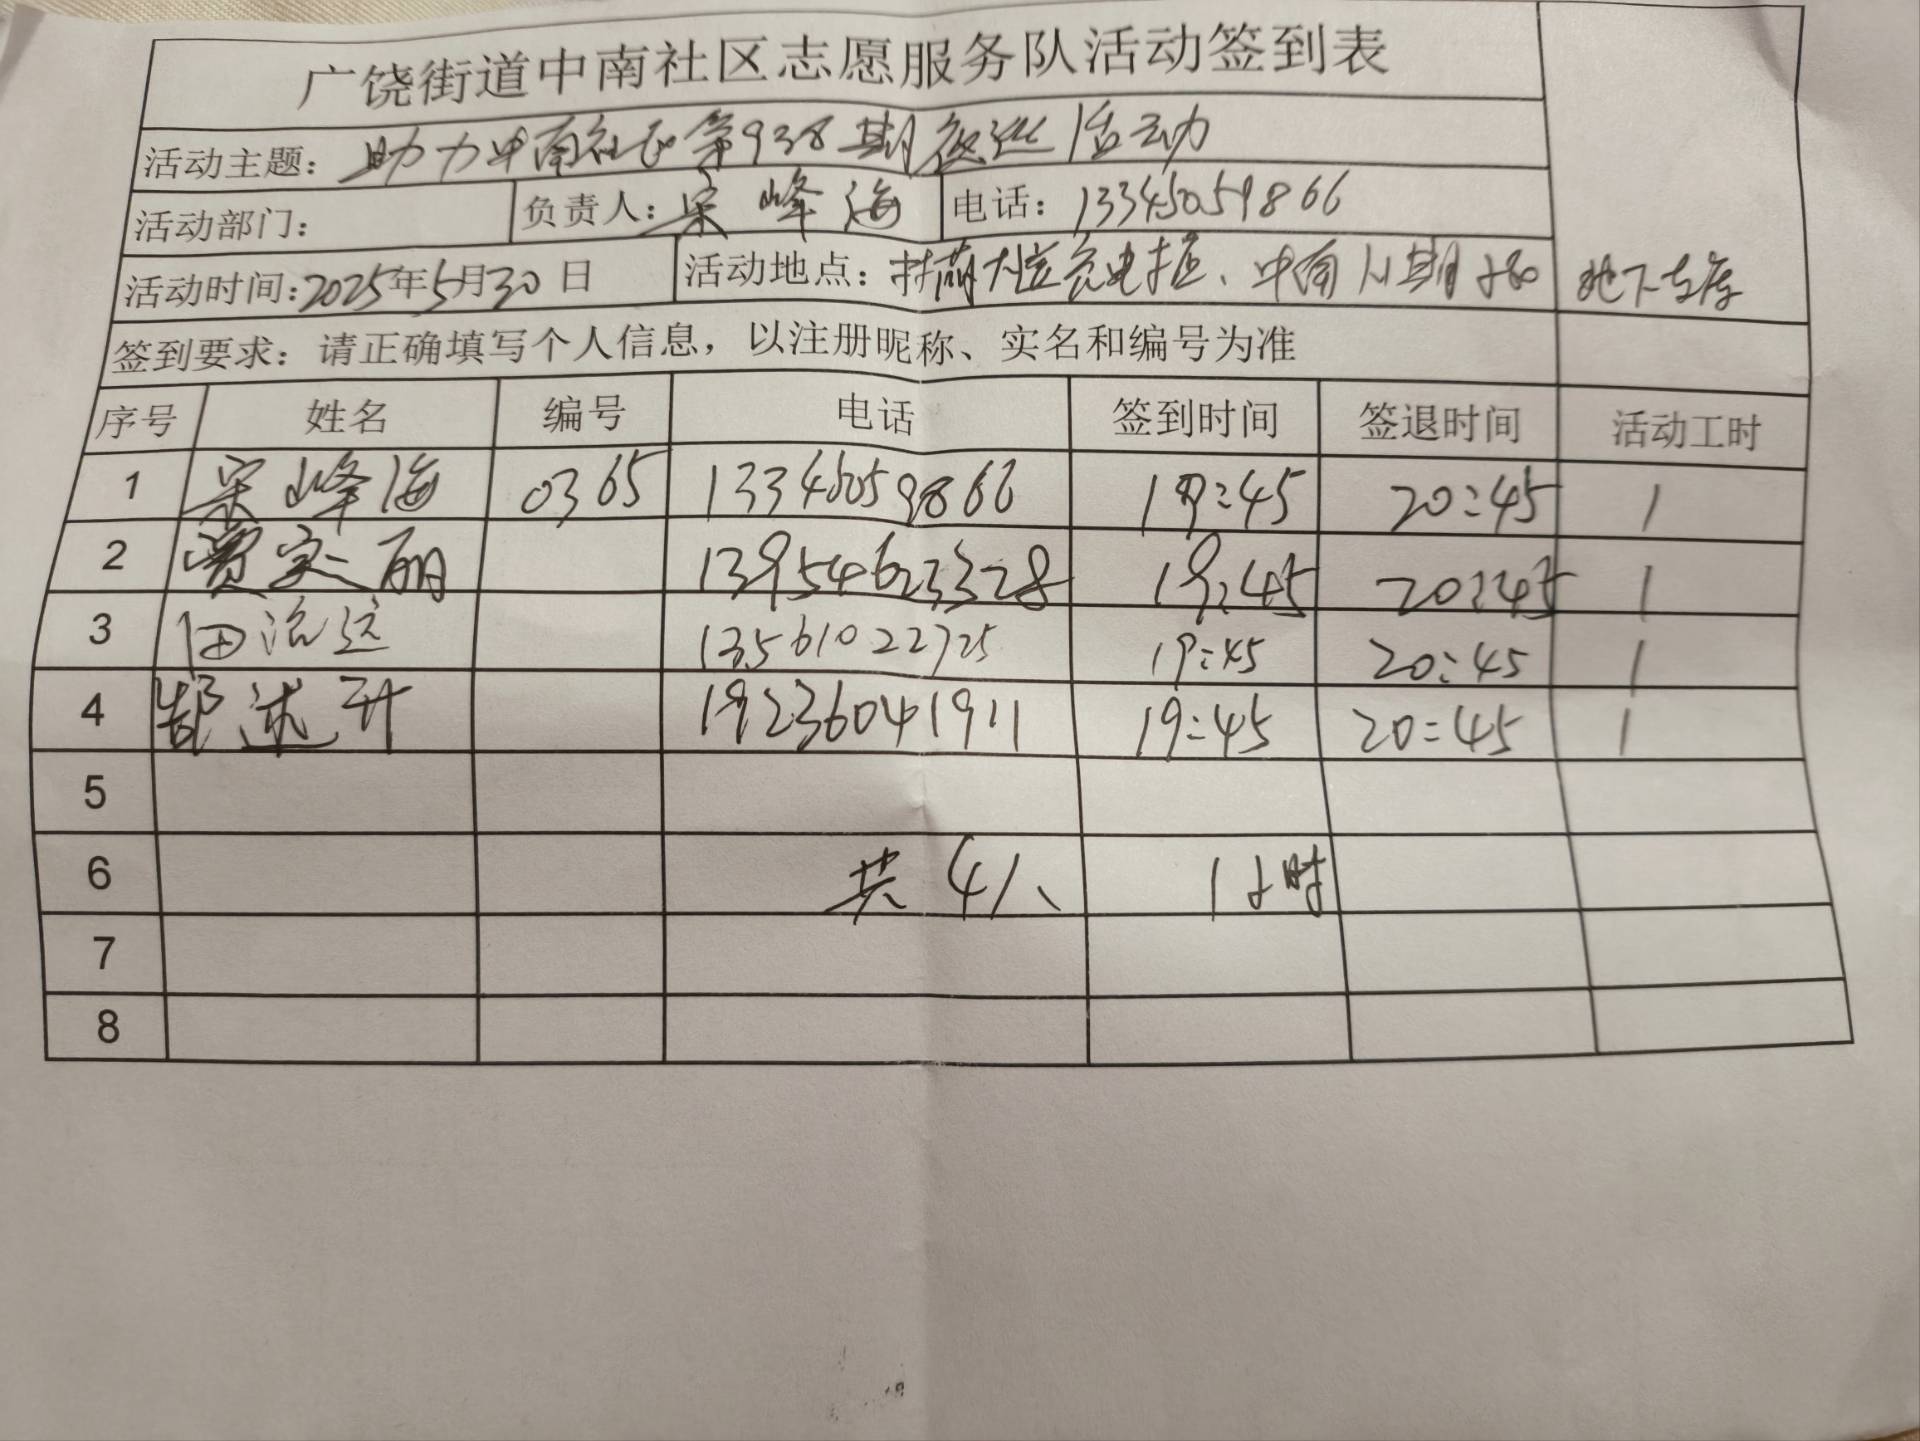 广饶街道中南社区志愿服务队活动签到表
活动主题：助力中南社区第938期夜巡活动
活动部门： 负责人：宋峰海 电话：13345059866
活动时间：2025年5月30日 活动地点： 充电桩、中南 期 地下车库
签到要求：请正确填写个人信息，以注册昵称、实名和编号为准
序号 姓名 编号 电话 签到时间 签退时间 活动工时
1 宋峰海 0365 13345059866 19:45 20:45 1
2 贾宝丽 13954623328 19:45 20:45 1
3 田治远 13561022725 19:45 20:45 1
4 述升 19236041911 19:45 20:45 1
5
6 共4人 1小时
7
8